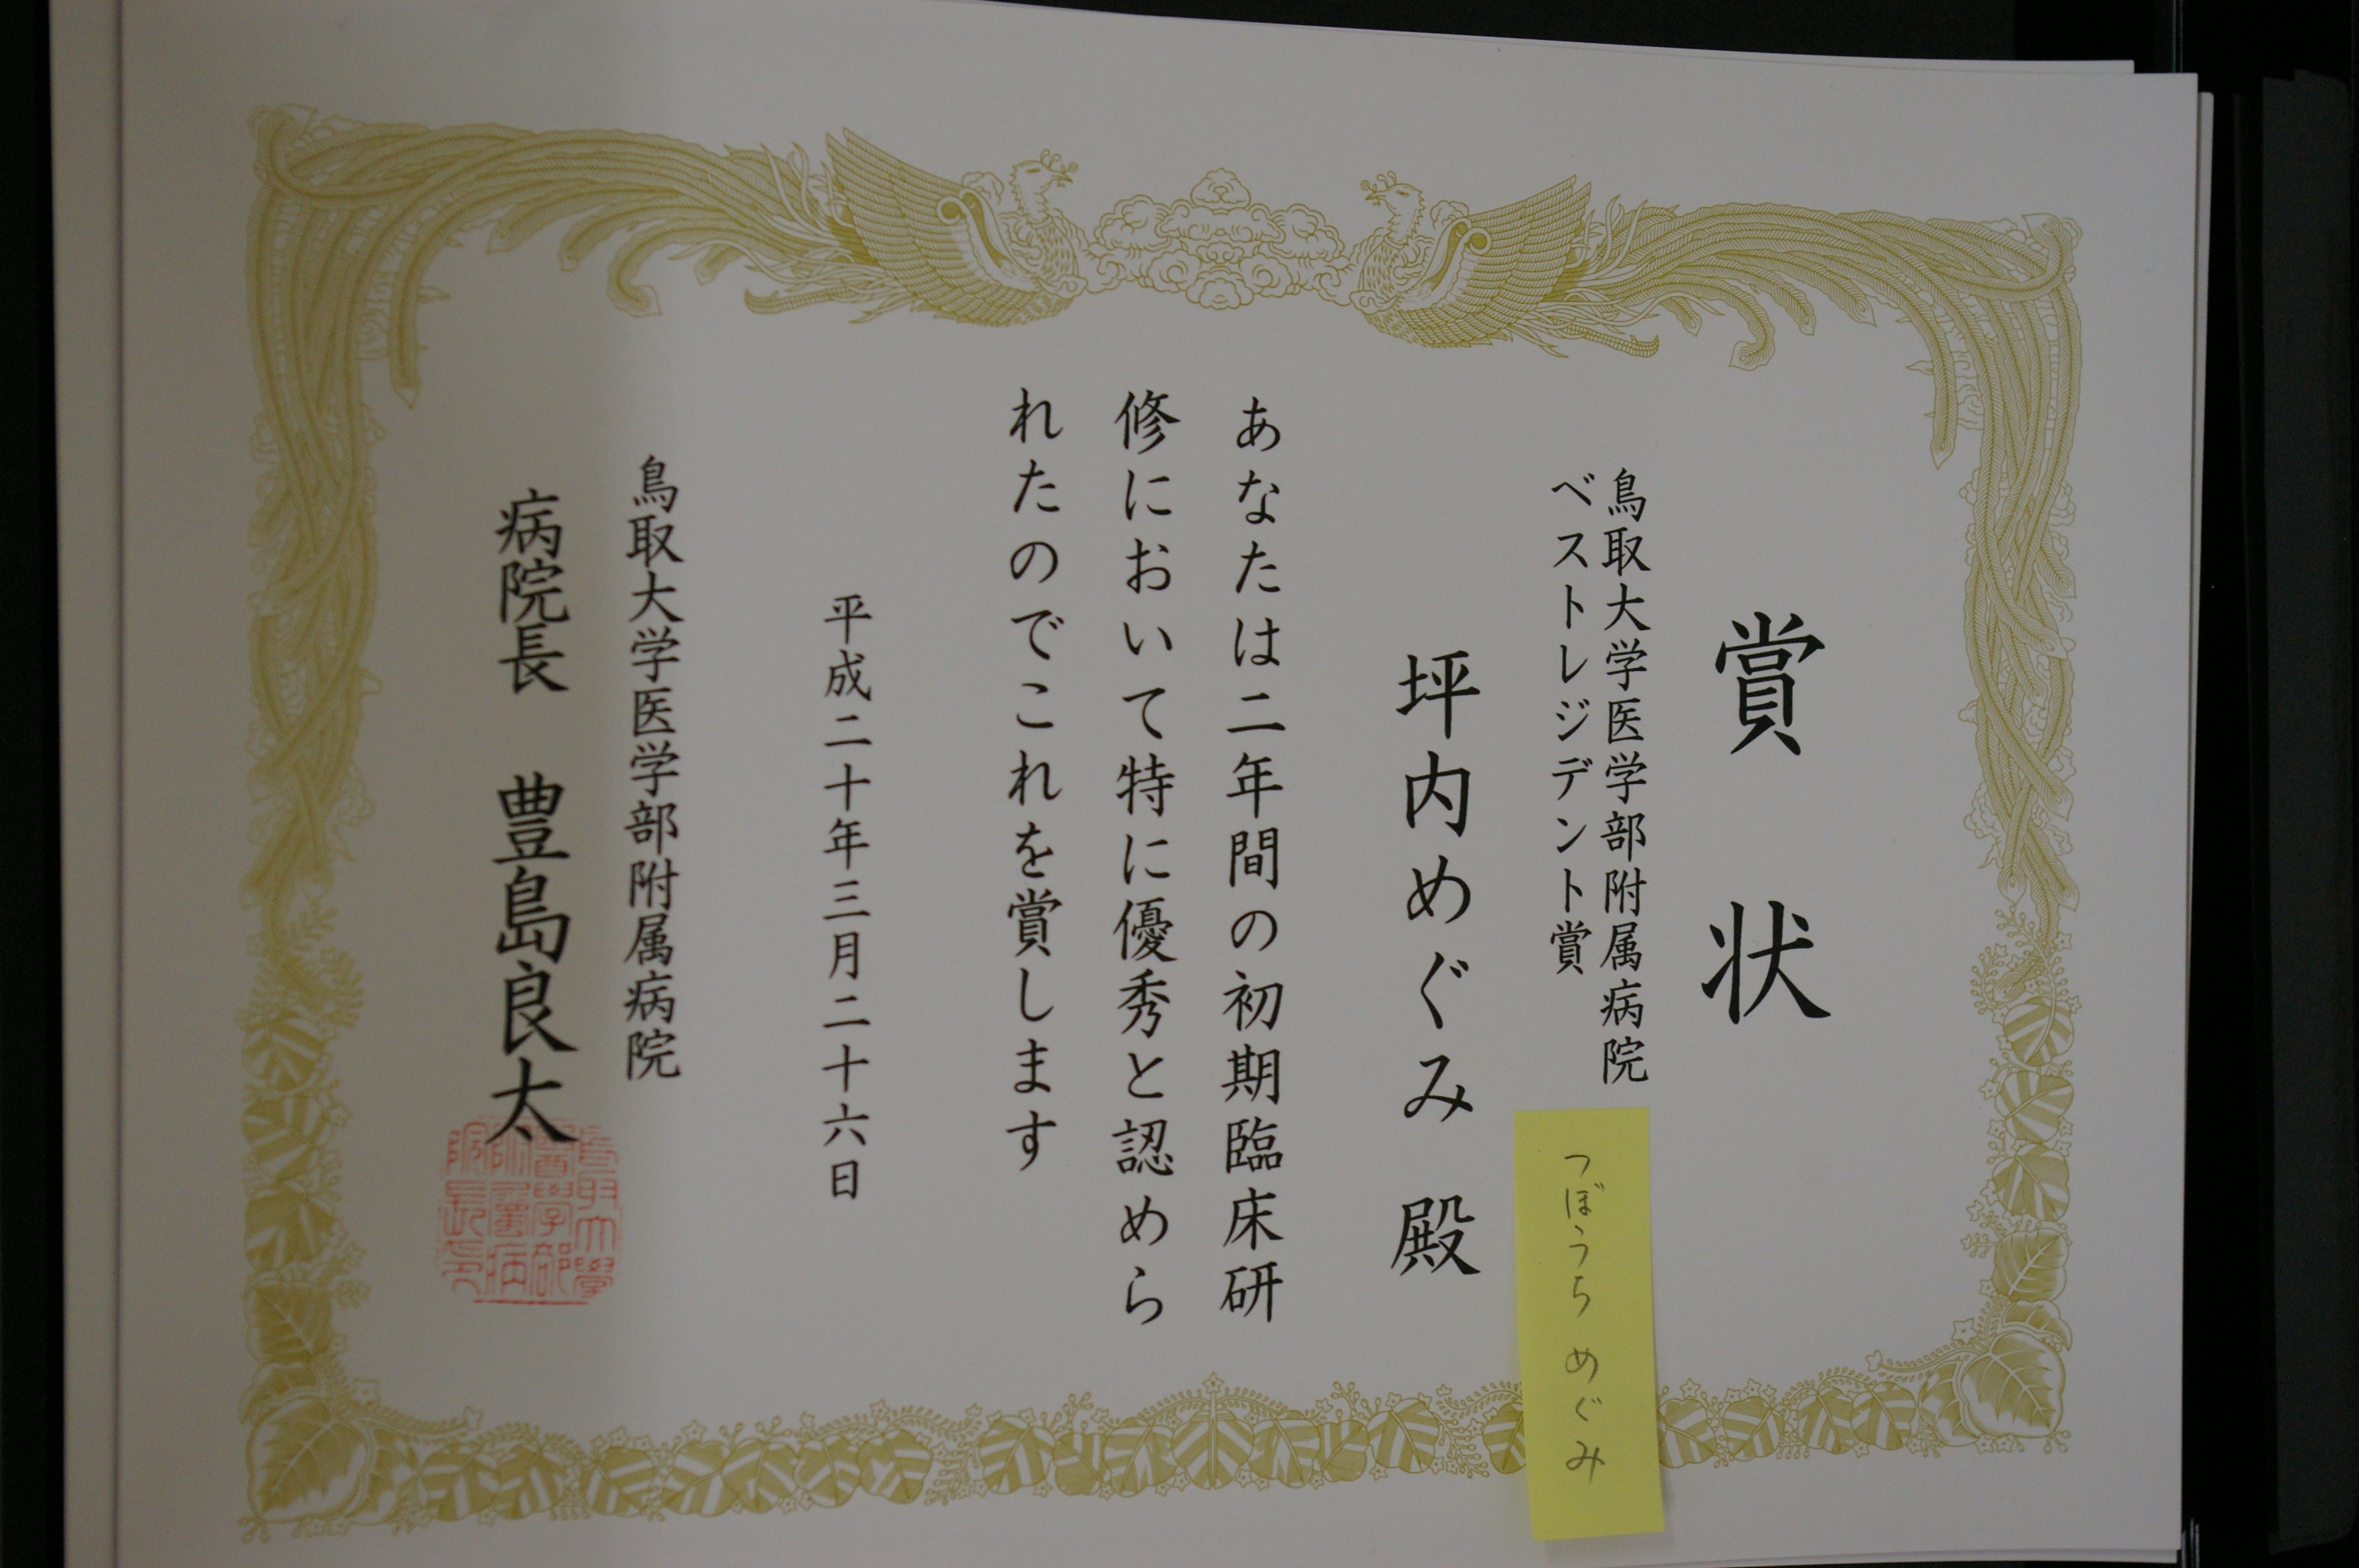 賞状
鳥取大学医学部附属病院
ベストレジデント賞
つぼうち めぐみ
坪内めぐみ 殿
あなたは二年間の初期臨床研
修において特に優秀と認めら
れたのでこれを賞します
平成二十年三月二十六日
鳥取大学医学部附属病院
病院長 豊島良太